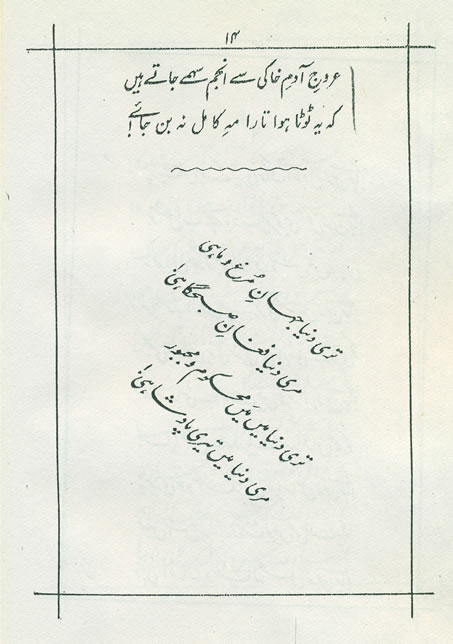 ۱۴
عروجِ آدمِ خاکی سے انجم سہمے جاتے ہیں
کہ یہ ٹوٹا ہوا تارا مہِ کامل نہ بن جائے!
تری دنیا جہانِ مُرغ و ماہی
مری دنیا فغانِ صبحگاہی!
تری دنیا میں مَیں محکوم و مجبور
مری دنیا میں تیری پادشاہی!